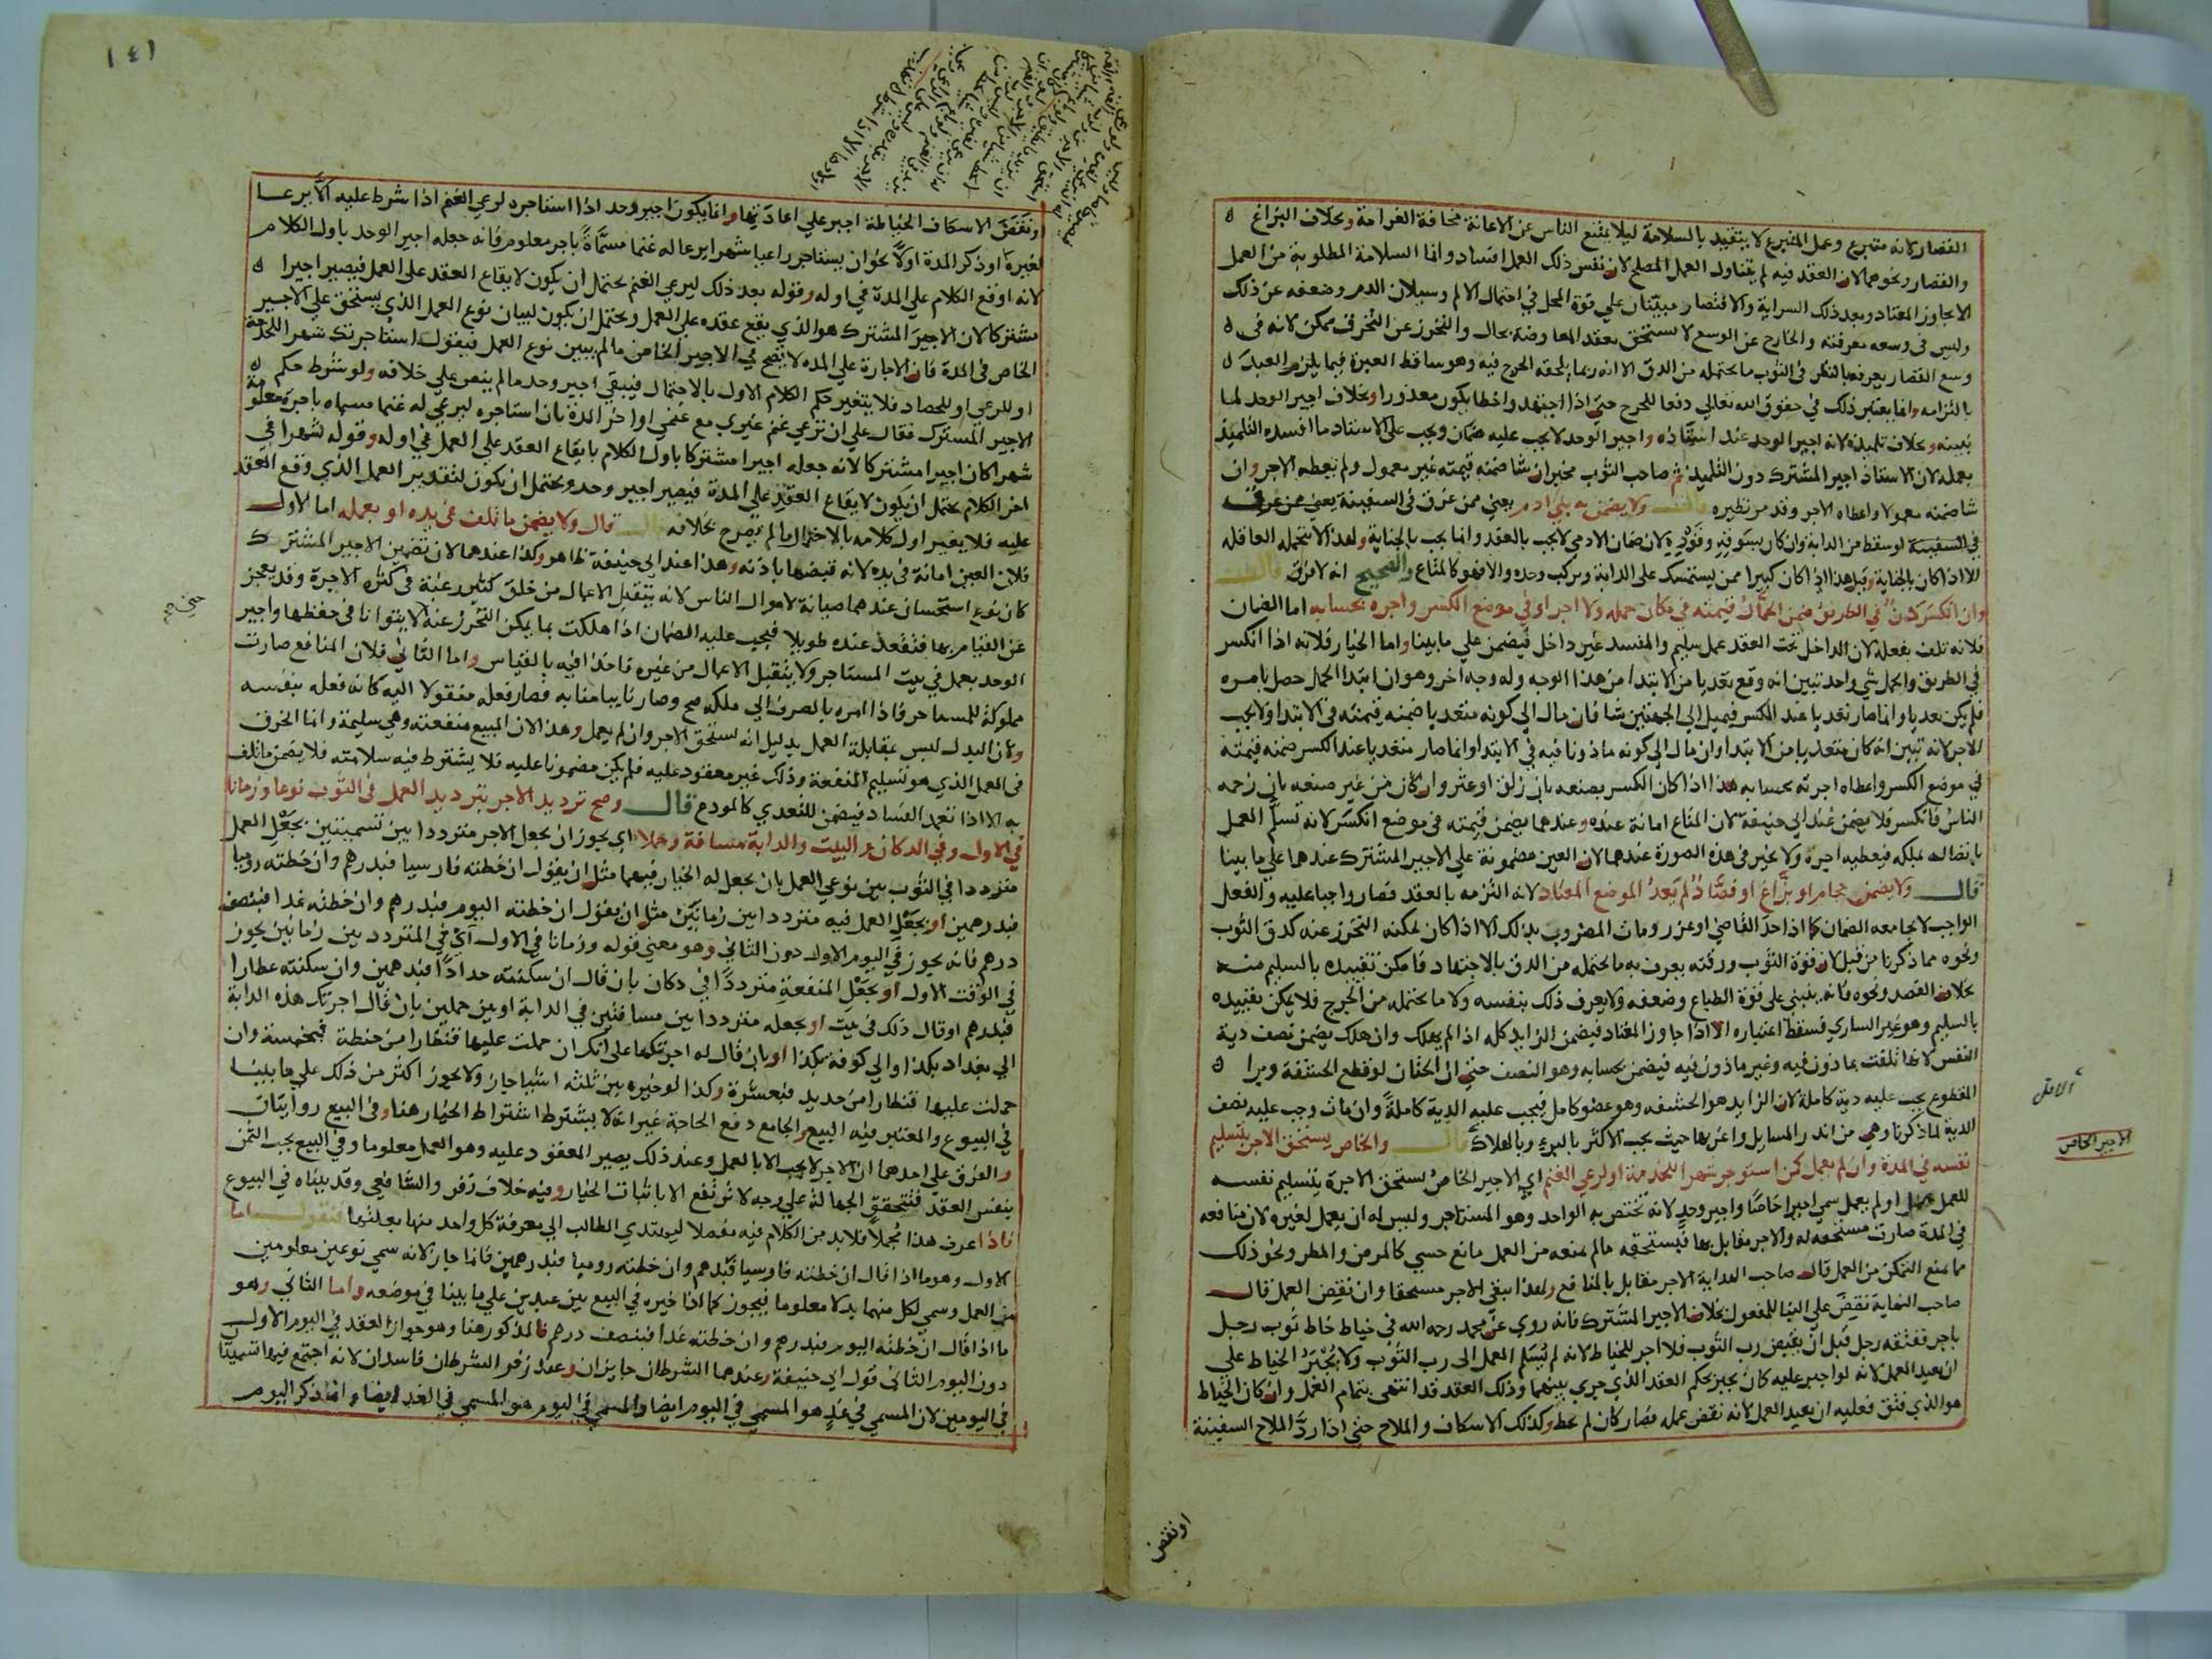 القصار لانه متبرع وعمل المتبرع لا يتقيد بالسلامة ليلا يمتنع الناس عن الاعانة مخافة الغرامة وبخلاف البزاغ
والفصاد ونحوهما لان العقد فيه لم يتناول العمل المصلح لان نفس ذلك العمل افساد وانما السلامة المطلوبة من العمل
الا يجاوز المعتاد وبعد ذلك السراية والاقتصار مبنيتان على قوة المحل في احتمال الالم وسيلان الدم وضعفه عن ذلك
وليس في وسعه معرفته والخارج عن الوسع لا يستحق بعقد المعاوضة بحال والتحرز عن التخرق ممكن لانه في
وسع القصار يعرفه بالنظر في الثوب ما يحتمله من الدق الا انه ربما يلحقه الحرج فيه وهو ساقط العبرة فيما يلزم العبد
بالتزامه وانما يعتبر ذلك في حقوق الله تعالى دفعا للحرج حتى اذا اجتهد واخطا يكون معذورا وبخلاف اجير الوحد لما
نبينه وبخلاف تلميذه لانه اجير الوحد عند استاذه واجير الوحد لا يجب عليه ضمان ويجب على الاستاد ما افسده التلميذ
بعمله لان الاستاذ اجير المشترك دون التلميذ ثم صاحب الثوب مخير ان شا ضمنه قيمته غير معمول ولم يعطه الاجر وان
شا ضمنه معمولا واعطاه الاجر وقد مر نظيره قال ولا يضمن به بني ادم يعني ممن غرق في السفينة يعني ممن غرق
في السفينة او سقط من الدابة وان كان بسوقه وقوده لان ضمان الادمي لا يجب بالعقد وانما يجب بالجناية ولهذا لا تتحمله العاقلة
الا اذا كان بالجناية وقيل هذا اذا كان كبيرا ممن يستمسك على الدابة ويركب وحده والا فهو كالمتاع والصحيح انه لا فرق قال
وان انكسر دن في الطريق ضمن الحمال قيمته في مكان حمله ولا اجر او في موضع الكسر واجره بحسابه اما الضمان
فلانه تلف بفعله لان الداخل تحت العقد عمل سليم والمفسد غير داخل فيضمن على ما بينا واما الخيار فلانه اذا انكسر
في الطريق والحمل شي واحد تبين انه وقع تعديا من الابتدا من هذا الوجه وله وجه اخر وهو ان ابتدا الحمل حصل بامره
فلم يكن تعديا وانما صار تعديا عند الكسر فيميل الى الجهتين شا فان مال الى كونه متعديا ضمنه قيمته في الابتدا ولا يجب
الاجر لانه تبين انه كان متعديا من الابتدا وان مال الى كونه ماذونا فيه في الابتدا وانما صار متعديا عند الكسر ضمنه قيمته
في موضع الكسر واعطاه اجرته بحسابه هذا اذا كان الكسر بصنعه بان زلق او عثر وان كان من غير صنعه بان زحمه
الناس فانكسر فلا يضمن عند ابي حنيفة لان المتاع امانة عنده وعندهما يضمن قيمته في موضع انكسر لانه تسلم العمل
باتصاله بملكه فيعطيه اجره ولا يخير في هذه الصورة عندهما لان العين مضمونة على الاجير المشترك عندهما على ما بينا
قال ولا يضمن حجام او بزاغ او فصاد لم يعد الموضع المعتاد لانه التزمه بالعقد فصار واجبا عليه والفعل
الواجب لا يجامعه الضمان كما اذا حد القاضي او عزر ومات المضروب بذلك الا اذا كان يمكنه التحرز عنه كدق الثوب
ونحوه مما ذكرنا من قبل لان قوة الثوب ورقته يعرف به ما يحتمله من الدق بالاجتهاد فامكن تقييده بالسليم منه
بخلاف الفصد ونحوه فانه يبتني على قوة الطباع وضعفه ولا يعرف ذلك بنفسه ولا ما يحتمله من الجرح فلا يمكن تقييده
بالسليم وهو غير الساري فسقط اعتباره الا اذا جاوز المعتاد فيضمن الزايد كله اذا لم يهلك وان هلك يضمن نصف دية
النفس لانها تلفت بماذون فيه وغير ماذون فيه فيضمن بحسابه وهو النصف حتى ان الختان لو قطع الحشفة وبرا
المقطوع يجب عليه دية كاملة لان الزايد هو الحشفه وهو عضو كامل فيجب عليه الدية كاملة وان مات وجب عليه نصف
الدية لما ذكرنا وهي من اندر المسايل واغربها حيث يجب الاكثر بالبرء وبالهلاك قال والخاص يستحق الاجر بتسليم
نفسه في المدة وان لم يعمل كمن استوجر شهرا للخدمة او لرعي الغنم اي الاجير الخاص يستحق الاجرة بتسليم نفسه
للعمل عمل او لم يعمل سمي اجيرا خاصا واجير وحد لانه يختص به الواحد وهو المستاجر وليس له ان يعمل لغيره لان منافعه
في المدة صارت مستحقه له والاجر مقابل بها فيستحقه ما لم يمنعه من العمل مانع حسي كالمرض والمطر ونحو ذلك
مما يمنع التمكن من العمل قال صاحب الهداية الاجر مقابل بالمنافع ولهذا يبقى الاجر مستحقا وان نقض العمل قال
صاحب النهاية نقض على البنا للمفعول بخلاف الاجير المشترك فانه روي عن محمد رحمه الله في خياط خاط ثوب رجل
باجر ففتقه رجل قبل ان يقبض رب الثوب فلا اجر للخياط لانه لم يسلم العمل الى رب الثوب ولا يجبر الخياط على
ان يعيد العمل لانه لو اجبر عليه كان يجبر بحكم العقد الذي جرى بينهما وذلك العقد قد انتهى بتمام العمل وان كان الخياط
هو الذي فتق فعليه ان يعيد العمل لانه نقض عمله فصار كان لم يخط وكذلك الاسكاف والملاح حتى اذا رد الملاح السفينة
الاجير الخاص
او نقض
١٤١
ونقض الاسكاف الخياطة اجبر على اعادتها وانما يكون اجير وحد اذا استاجره لرعي الغنم اذا شرط عليه الا يرعا
لغيره او ذكر المدة اولا نحو ان يستاجر راعيا شهرا يرعا له غنما مسماة باجر معلوم فانه جعله اجير الوحد باول الكلام
لانه اوقع الكلام على المدة في اوله وقوله بعد ذلك ليرعي الغنم يحتمل ان يكون لايقاع العقد على العمل فيصير اجيرا
مشتركا لان الاجير المشترك هو الذي يقع عقده على العمل ويحتمل ان يكون لبيان نوع العمل الذي يستحق على الاجير
الخاص في المدة فان الاجارة على المدة لا تصح في الاجير الخاص ما لم يبين نوع العمل فيقول استاجرتك شهرا للخدمة
او للرعي او للحصاد فلا يتغير حكم الكلام الاول بالاحتمال فيبقى اجير وحد ما لم ينص على خلافه ولو شرط حكم
الاجير المشترك فقال على ان ترعي غنم غيري مع غنمي او اخر المدة بان استاجره ليرعي له غنما مسماه باجرة معلومة
شهرا كان اجيرا مشتركا لانه جعله اجيرا مشتركا باول الكلام بايقاع العقد على العمل في اوله وقوله شهرا في
اخر الكلام يحتمل ان يكون لايقاع العقد على المدة فيصير اجير وحد ويحتمل ان يكون لتقدير العمل الذي وقع العقد
عليه فلا يغير اول كلامه بالاحتمال ما لم يصرح بخلافه قال ولا يضمن ما تلف في يده او بعمله اما الاول
فلان العين امانة في يده لانه قبضها باذنه وهذا عند ابي حنيفة ظاهر وكذا عندهما لان تضمين الاجير المشترك
كان نوع استحسان عندهما صيانة لاموال الناس لانه يتقبل الاعمال من خلق كثير رغبة في كثرة الاجرة وقد يعجز
عن القيام بها فتقعد عنده طويلا فيجب عليه الضمان اذا هلكت بما يمكن التحرز عنه لا يتوانا في حفظها واجير
الوحد يعمل في بيت المستاجر ولا يتقبل الاعمال من غيره فاخذا فيه بالقياس واما الثاني فلان المنافع صارت
مملوكة للمستاجر فاذا امره بالصرف الى ملكه صح وصار نايبا منابه فصار فعله منقولا اليه كانه فعله بنفسه
ولان البدل ليس بمقابلة العمل بدليل انه يستحق الاجر وان لم يعمل وهذا لان المبيع منفعته وهي سليمة وانما الخرق
في العمل الذي هو تسليم المنفعة وذلك غير معقود عليه فلم يكن مضمونا عليه فلا يشترط فيه سلامته فلا يضمن ما تلف
به الا اذا تعمد الفساد فيضمن للتعدي كالمودع قال وصح ترديد الاجر بترديد العمل في الثوب نوعا وزمانا
في الاول وفي الدكان والبيت والدابة مسافة وحملا اي يجوز ان يجعل الاجر مترددا بين تسميتين بجعل العمل
مترددا في الثوب بين نوعي العمل بان يجعل له الخيار فيهما مثل ان يقول ان خطته فارسيا فبدرهم وان خطته روميا
فبدرهمين او يجعل العمل فيه مترددا بين زمانين مثل ان يقول ان خطته اليوم فبدرهم وان خطته غدا فبنصف
درهم فانه يجوز في اليوم الاول دون الثاني وهو معنى قوله وزمانا في الاول اي في المتردد بين زمانين يجوز
في الوقت الاول او يجعل المنفعة مترددا في دكان بان قال ان سكنته حدادا فبدرهمين وان سكنته عطارا
فبدرهم او قال ذلك في بيت او يجعله مترددا بين مسافتين في الدابة او بين حملين بان قال اجرتك هذه الدابة
الى بغداد بكذا او الى كوفة بكذا او بان قال له اجرتكها على انك ان حملت عليها قنطارا من حنطة فبخمسة وان
حملت عليها قنطارا من حديد فبعشرة وكذا لو خيره بين ثلثه اشيا جاز ولا يجوز اكثر من ذلك على ما بينا
في البيوع والمعتبر فيه البيع والجامع دفع الحاجة غير انه لا يشترط اشتراط الخيار هنا وفي البيع روايتان
والفرق على احدهما ان الاجر لا يجب الا بالعمل وعند ذلك يصير المعقود عليه وهو العمل معلوما وفي البيع يجب الثمن
بنفس العقد فتتحقق الجهالة على وجه لا ترتفع الا باثبات الخيار وفيه خلاف زفر والشافعي وقد بيناه في البيوع
فاذا عرف هذا مجملا فلا بد من الكلام فيه مفصلا ليهتدي الطالب الى معرفة كل واحد منها بعلتها فنقول اما
الاول وهو ما اذا قال ان خطته فارسيا فبدرهم وان خطته روميا فبدرهمين فانما جاز لانه سمي نوعين معلومين
من العمل وسمي لكل منهما بدلا معلوما فيجوز كما اذا خيره في البيع بين عبدين على ما بينا في موضعه واما الثاني وهو
ما اذا قال ان خطته اليوم فبدرهم وان خطته غدا فبنصف درهم فالمذكور هنا وهو جواز العقد في اليوم الاول
دون اليوم الثاني قول ابي حنيفة وعندهما الشرطان جايزان وعند زفر الشرطان فاسدان لانه اجتمع فيهما تسميتان
في اليومين لان المسمي في غد هو المسمي في اليوم ايضا والمسمي في اليوم هو المسمي في الغد ايضا وانما ذكر اليوم